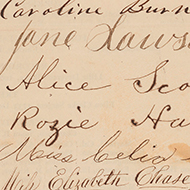 Caroline Burn
Jane Laws
Alice Sco
Rozie Ha
Miss Celia
Elizabeth Chase